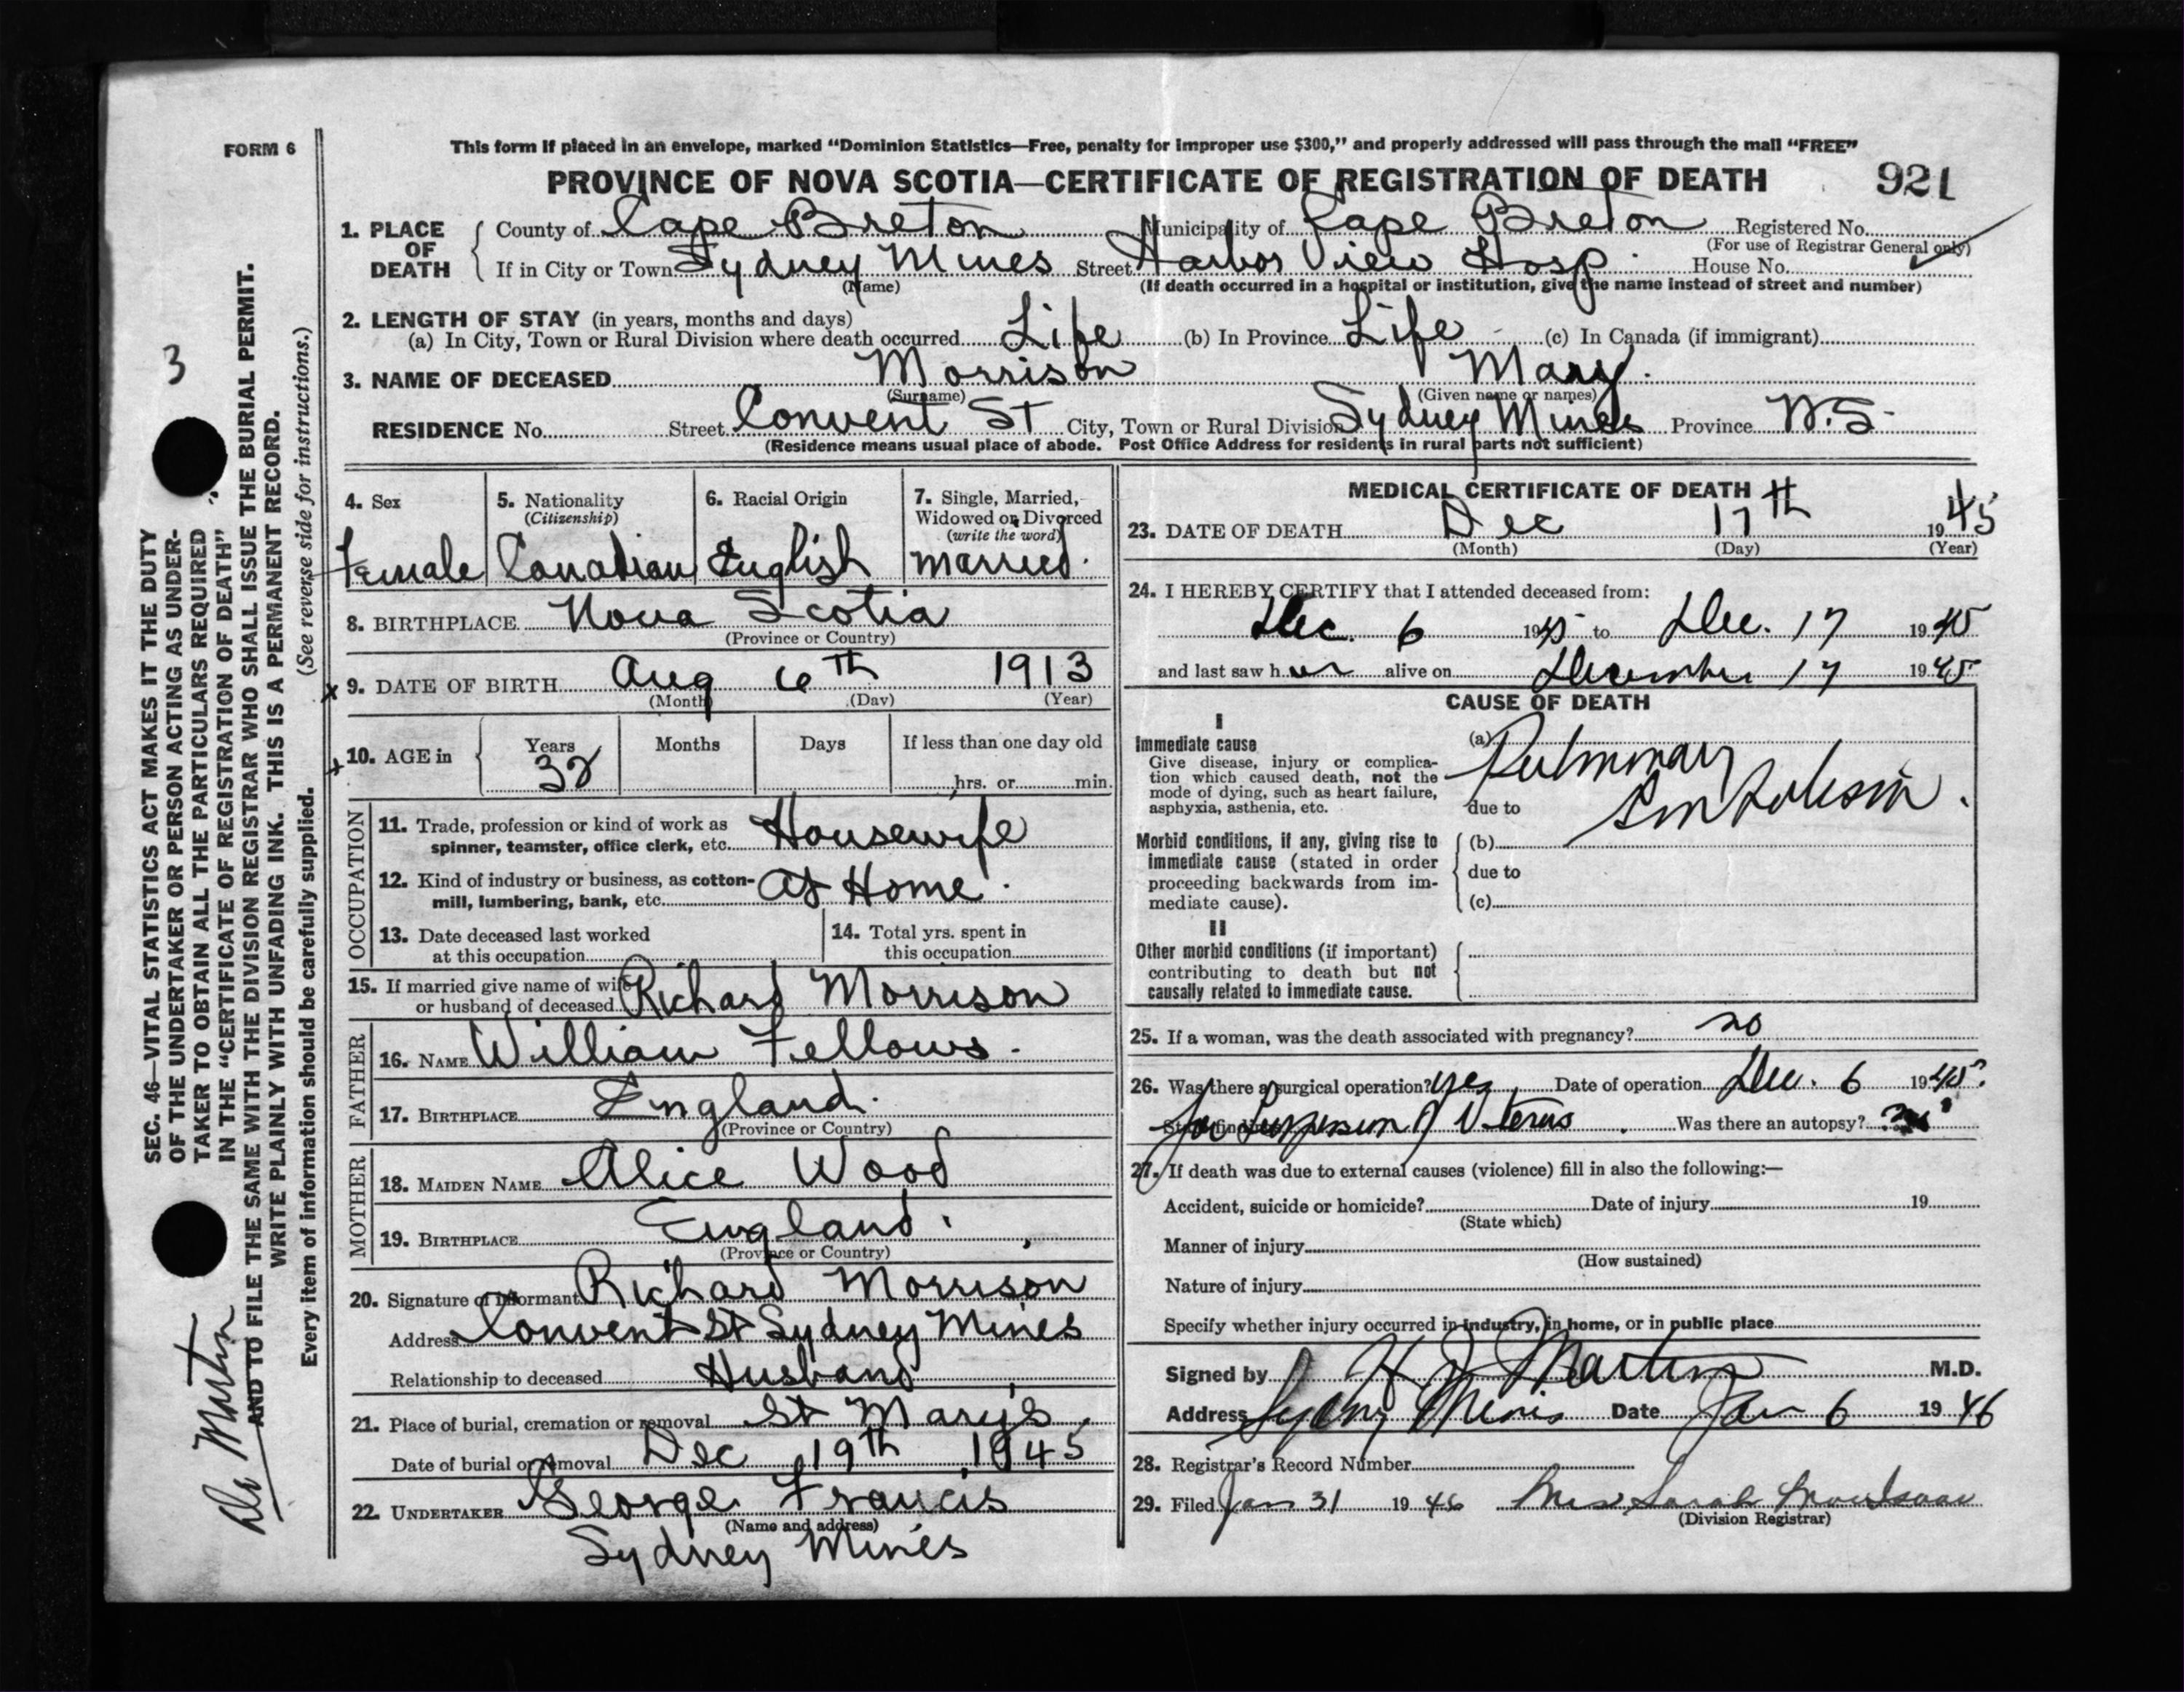 FORM 6
This form if placed in an envelope, marked "Dominion Statistics—Free, penalty for improper use $300," and properly addressed will pass through the mail "FREE"
PROVINCE OF NOVA SCOTIA—CERTIFICATE OF REGISTRATION OF DEATH 921
1. PLACE OF DEATH
County of Cape Breton Municipality of Cape Breton Registered No.
(For use of Registrar General only)
If in City or Town Sydney Mines Street Harbor View Hosp. House No.
(Name) (If death occurred in a hospital or institution, give the name instead of street and number)
2. LENGTH OF STAY (in years, months and days)
(a) In City, Town or Rural Division where death occurred Life (b) In Province Life (c) In Canada (if immigrant)
3. NAME OF DECEASED Morrison Mary.
(Surname) (Given name or names)
RESIDENCE No. Street Convent St City, Town or Rural Division Sydney Mines Province N.S.
(Residence means usual place of abode. Post Office Address for residents in rural parts not sufficient)
4. Sex
Female
5. Nationality
(Citizenship)
Canadian
6. Racial Origin
English
7. Single, Married,
Widowed or Divorced
(write the word)
Married.
8. BIRTHPLACE Nova Scotia
(Province or Country)
x 9. DATE OF BIRTH Aug 6th 1913
(Month) (Day) (Year)
x 10. AGE in
Years Months Days If less than one day old
32 hrs. or min.
OCCUPATION
11. Trade, profession or kind of work as
spinner, teamster, office clerk, etc. Housewife
12. Kind of industry or business, as cotton-
mill, lumbering, bank, etc. At Home.
13. Date deceased last worked
at this occupation
14. Total yrs. spent in
this occupation
15. If married give name of wife
or husband of deceased Richard Morrison
FATHER
16. NAME William Fellows.
17. BIRTHPLACE England.
(Province or Country)
MOTHER
18. MAIDEN NAME Alice Wood
19. BIRTHPLACE England.
(Province or Country)
20. Signature of Informant Richard Morrison
Address Convent St Sydney Mines
Relationship to deceased Husband
21. Place of burial, cremation or removal St Mary's
Date of burial or removal Dec 19th 1945
22. UNDERTAKER George Francis
(Name and address)
Sydney Mines
MEDICAL CERTIFICATE OF DEATH
23. DATE OF DEATH Dec 17th 1945
(Month) (Day) (Year)
24. I HEREBY CERTIFY that I attended deceased from:
Dec. 6 1945 to Dec. 17 1945
and last saw her alive on December 17 1945
CAUSE OF DEATH
I
Immediate cause
Give disease, injury or complica-
tion which caused death, not the
mode of dying, such as heart failure,
asphyxia, asthenia, etc.
(a) Pulmonary
due to Embolism.
Morbid conditions, if any, giving rise to
immediate cause (stated in order
proceeding backwards from im-
mediate cause).
(b)
due to
(c)
II
Other morbid conditions (if important)
contributing to death but not
causally related to immediate cause.
25. If a woman, was the death associated with pregnancy? no
26. Was there a surgical operation? yes Date of operation Dec. 6 1945
for Suspension of Uterus. Was there an autopsy?
27. If death was due to external causes (violence) fill in also the following:—
Accident, suicide or homicide? Date of injury 19
(State which)
Manner of injury
(How sustained)
Nature of injury
Specify whether injury occurred in industry, in home, or in public place
Signed by H J Martin M.D.
Address Sydney Mines Date Jan 6 1946
28. Registrar's Record Number
29. Filed Jan 31 1946 Mrs Sarah
(Division Registrar)
3
SEC. 46—VITAL STATISTICS ACT MAKES IT THE DUTY
OF THE UNDERTAKER OR PERSON ACTING AS UNDER-
TAKER TO OBTAIN ALL THE PARTICULARS REQUIRED
IN THE "CERTIFICATE OF REGISTRATION OF DEATH"
AND TO FILE THE SAME WITH THE DIVISION REGISTRAR WHO SHALL ISSUE THE BURIAL PERMIT.
WRITE PLAINLY WITH UNFADING INK. THIS IS A PERMANENT RECORD.
Every item of information should be carefully supplied. (See reverse side for instructions.)
Dr Martin